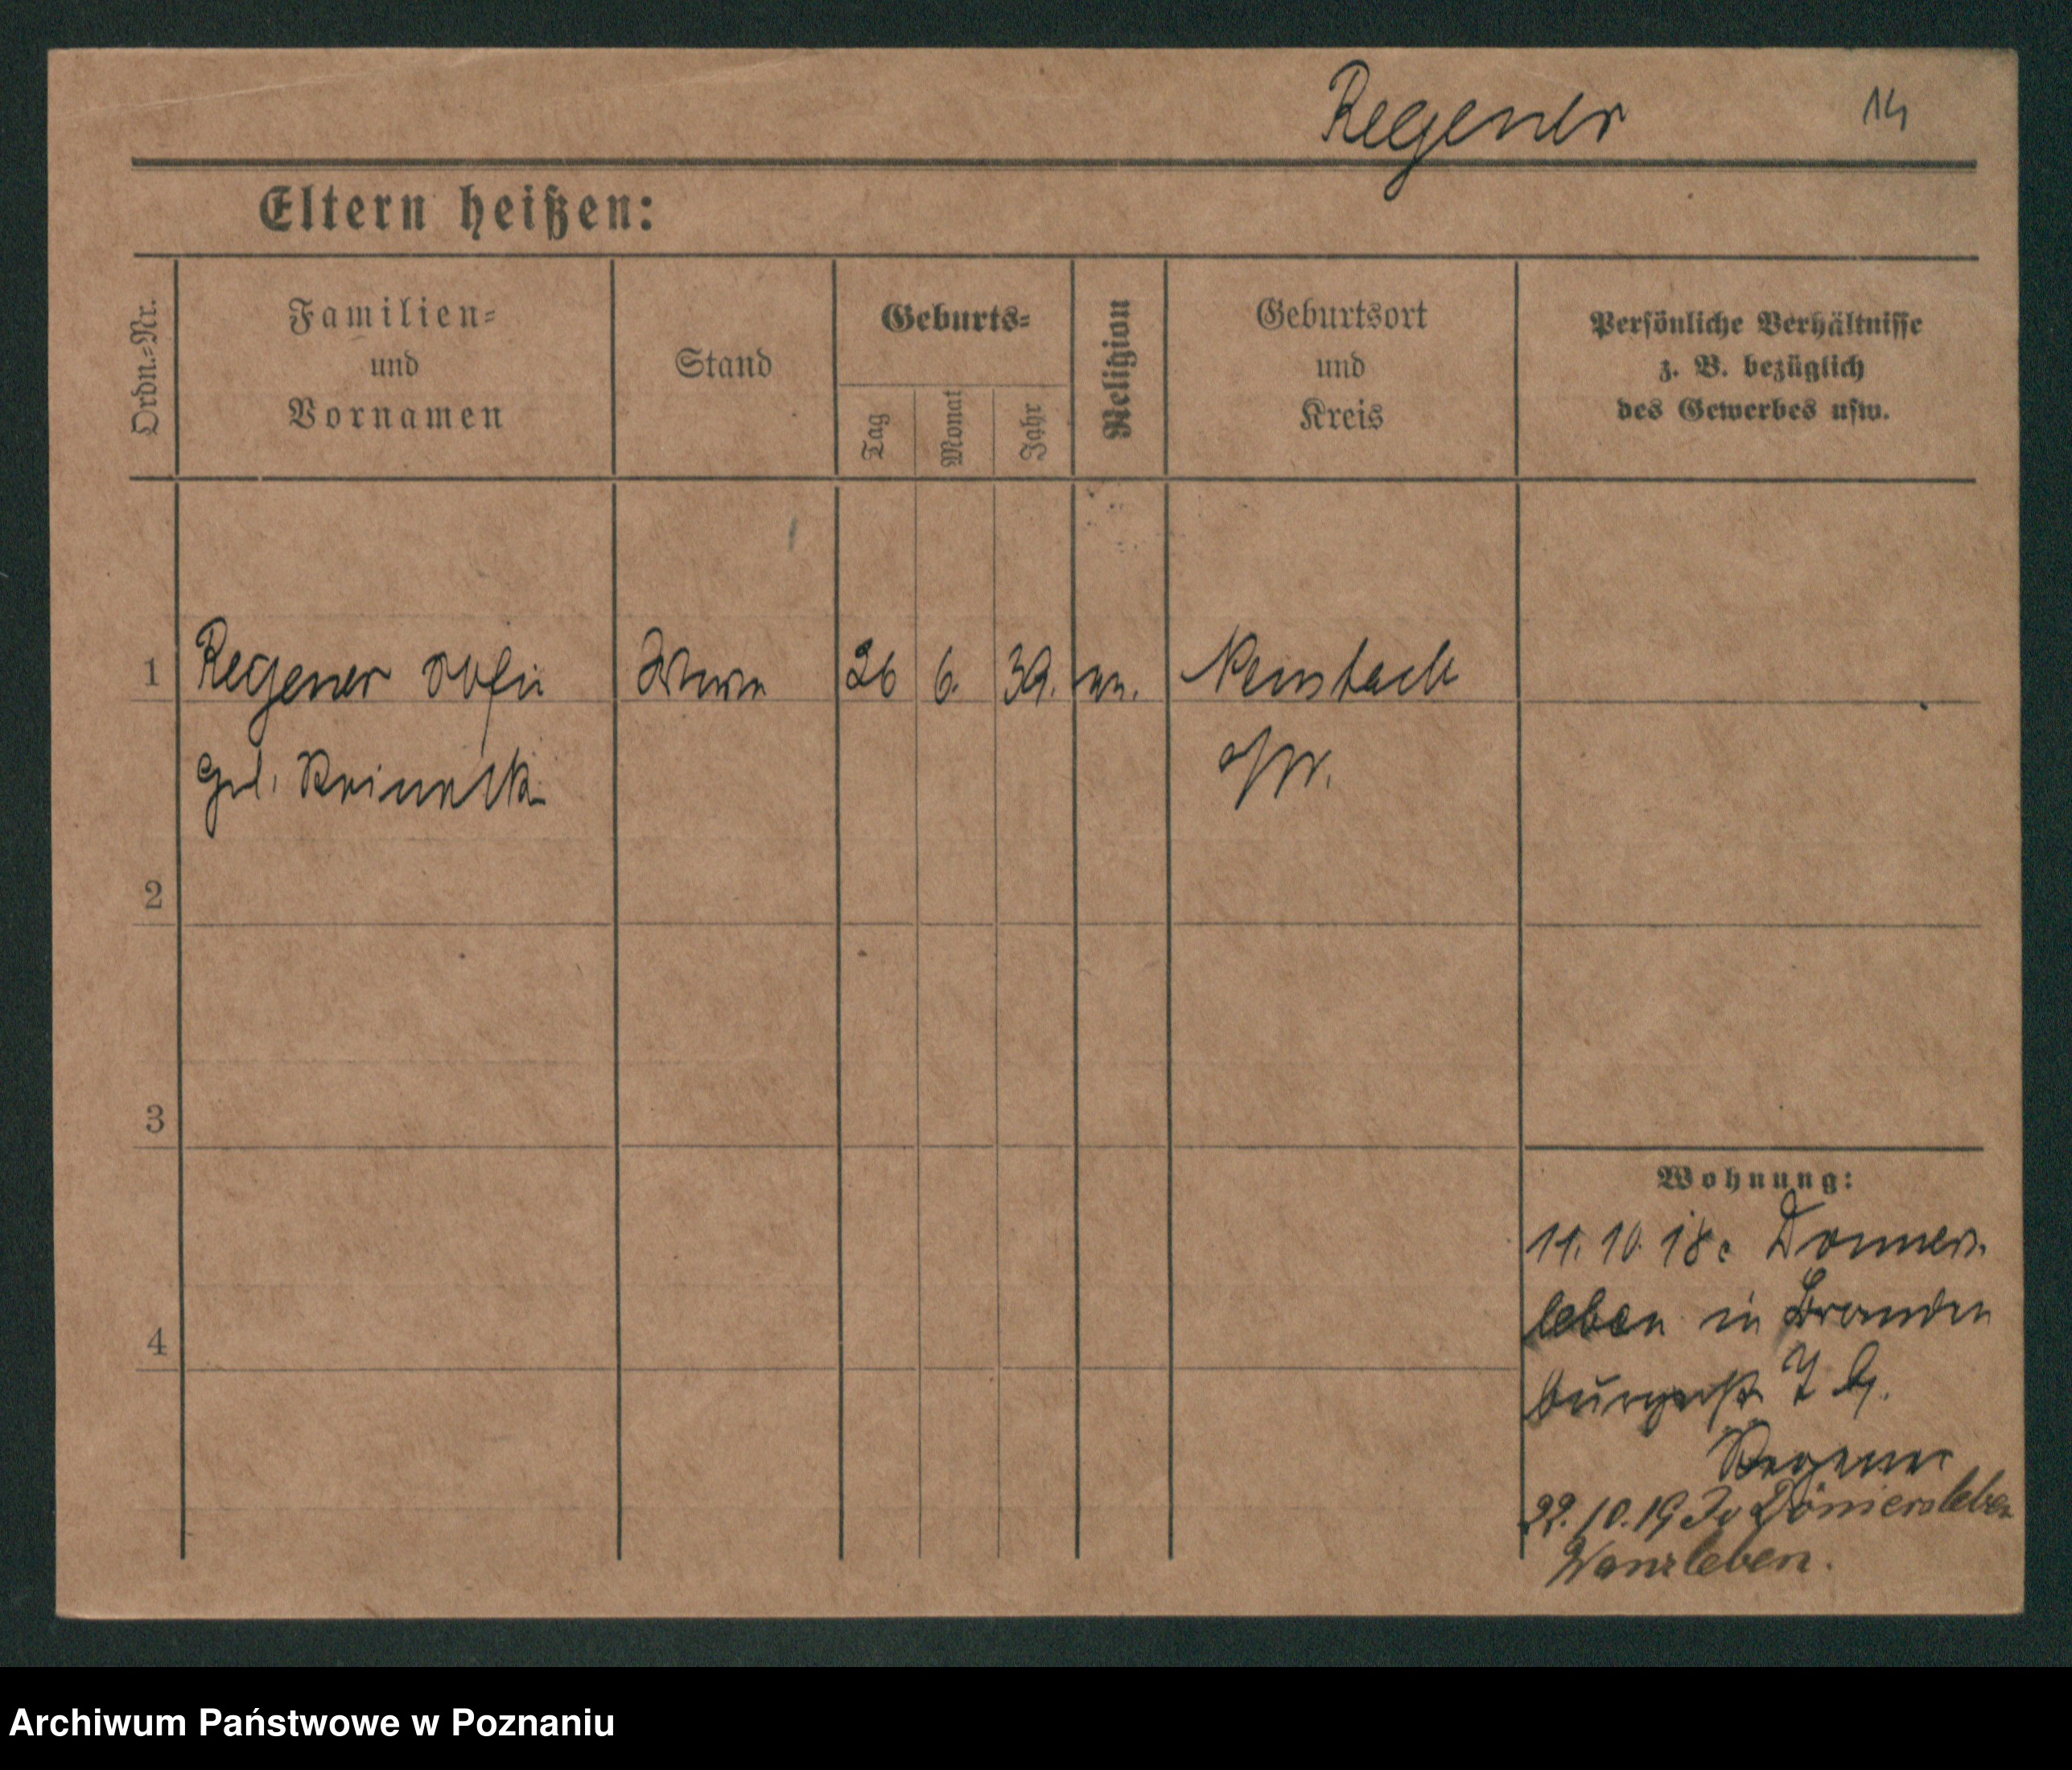 Regener 14
Eltern heißen:
Ordn.-Nr.
Familien-
und
Vornamen
Stand
Geburts-
Tag
Monat
Jahr
Religion
Geburtsort
und
Kreis
Persönliche Verhältnisse
z. B. bezüglich
des Gewerbes usw.
1 Regener Witwe 26 6. 39. ev.
geb.
2
3
4
Wohnung:
11. 10. 18: Donners-
leben in Branden
burgerstr 7 b.
Regener
22. 10. 19
Wanzleben.
Archiwum Państwowe w Poznaniu